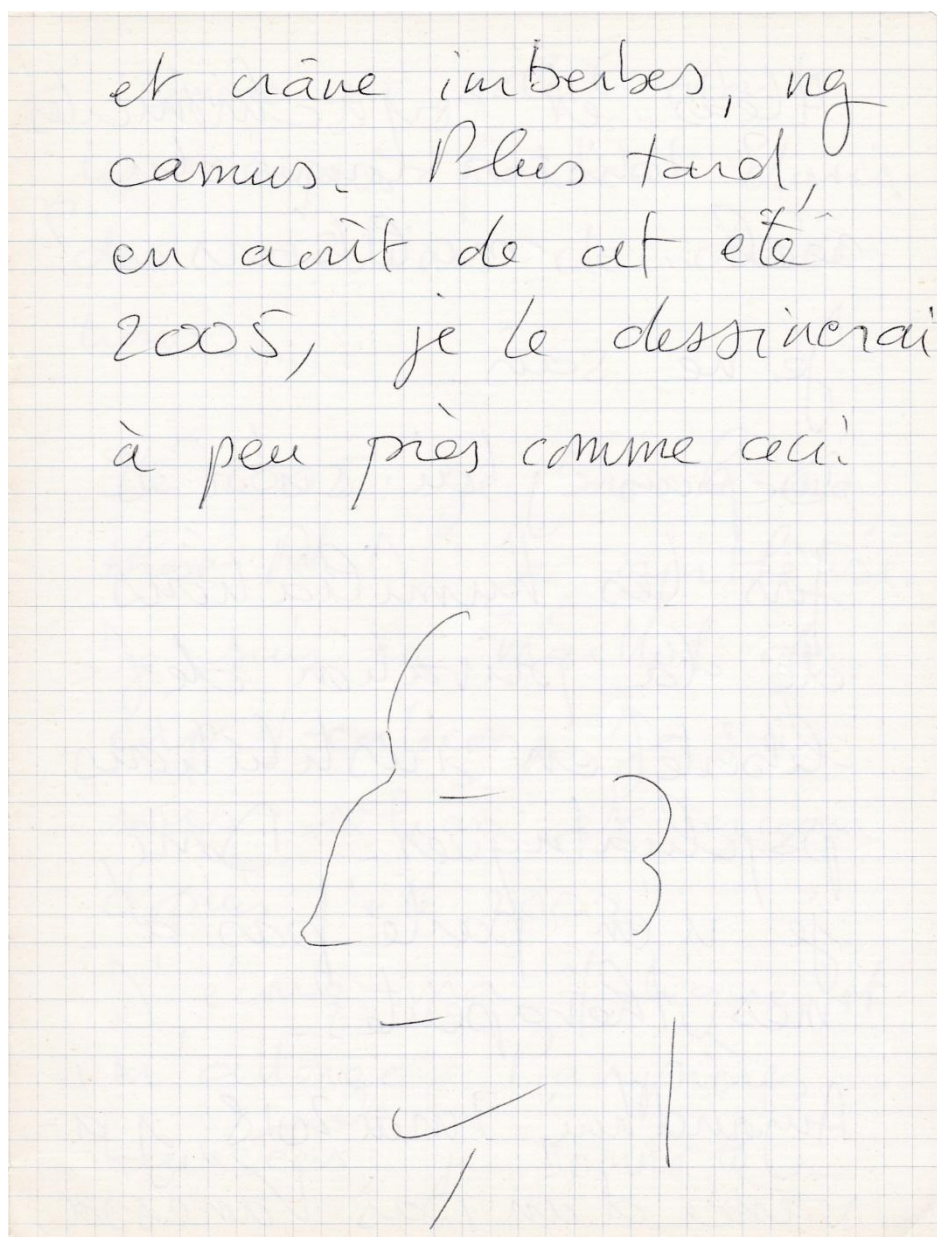 et crâne imberbes, nez
camus. Plus tard,
en août de cet été
2005, je le dessinerai
à peu près comme ceci: